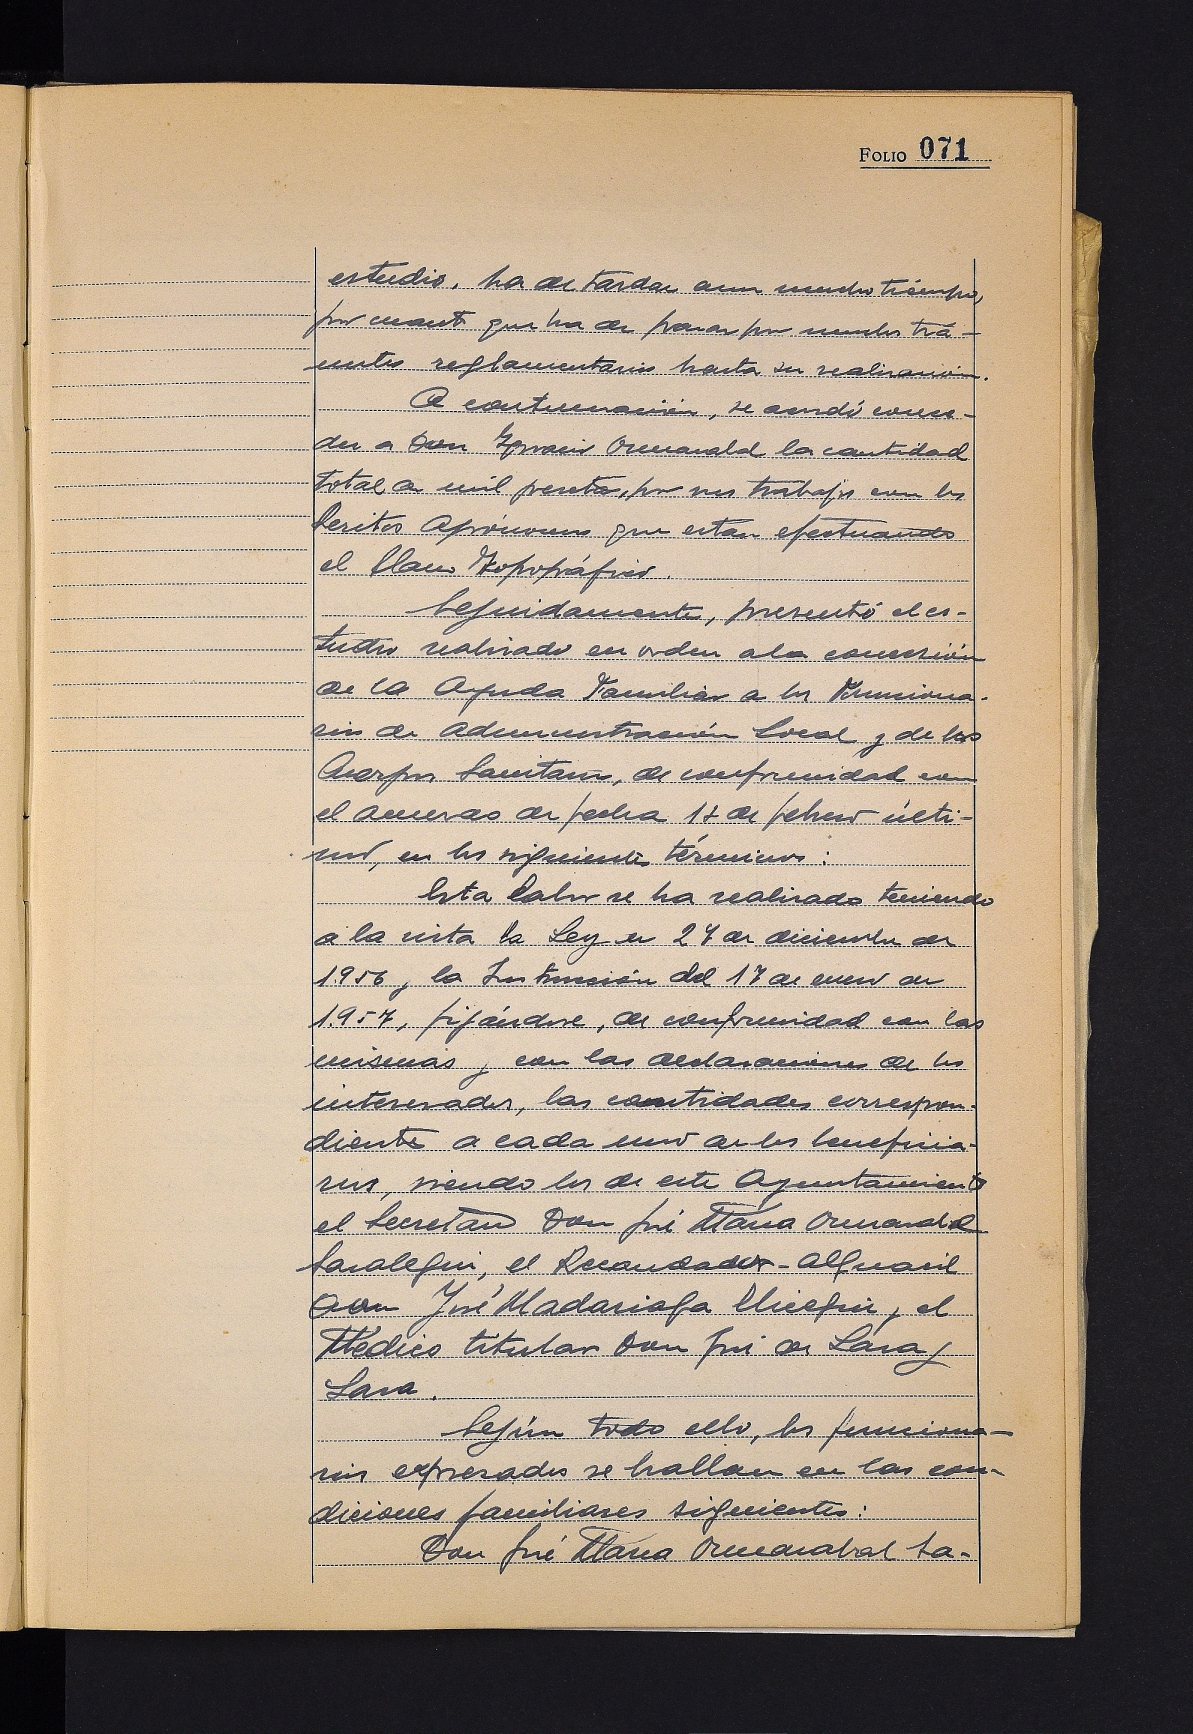 FOLIO 071
estudio, ha de tardar aun mucho tiempo,
por cuanto que ha de pasar por muchos trá-
mites reglamentarios hasta su realización.
A continuación, se acordó conce-
der a Don Ignacio Ormazabal la cantidad
total de mil pesetas, por sus trabajos con los
Peritos Agrónomos que estan efectuando
el Plano Topográfico.
Seguidamente, presentó el es-
tudio realizado en orden a la concesión
de la Ayuda Familiar a los Funciona-
rios de Administración Local y de los
Cuerpos Sanitarios, de conformidad con
el acuerdo de fecha de febrero últi-
mo, en los siguientes términos:
Esta labor se ha realizado teniendo
a la vista la Ley de 27 de diciembre de
1.956 y la Instrucción del 17 de enero de
1.957, fijándose, de conformidad con las
mismas y con las declaraciones de los
interesados, las cantidades correspon-
dientes a cada uno de los beneficia-
rios, siendo los de este Ayuntamiento
el Secretario Don José María Ormazabal
Saralegui, el Recaudador-Alguacil
Don José Madariaga Elicegui y el
Médico titular Don José de Lasa y
Lasa.
Según todo ello, los funciona-
rios expresados se hallan en las con-
diciones familiares siguientes:
Don José María Ormazabal Sa-